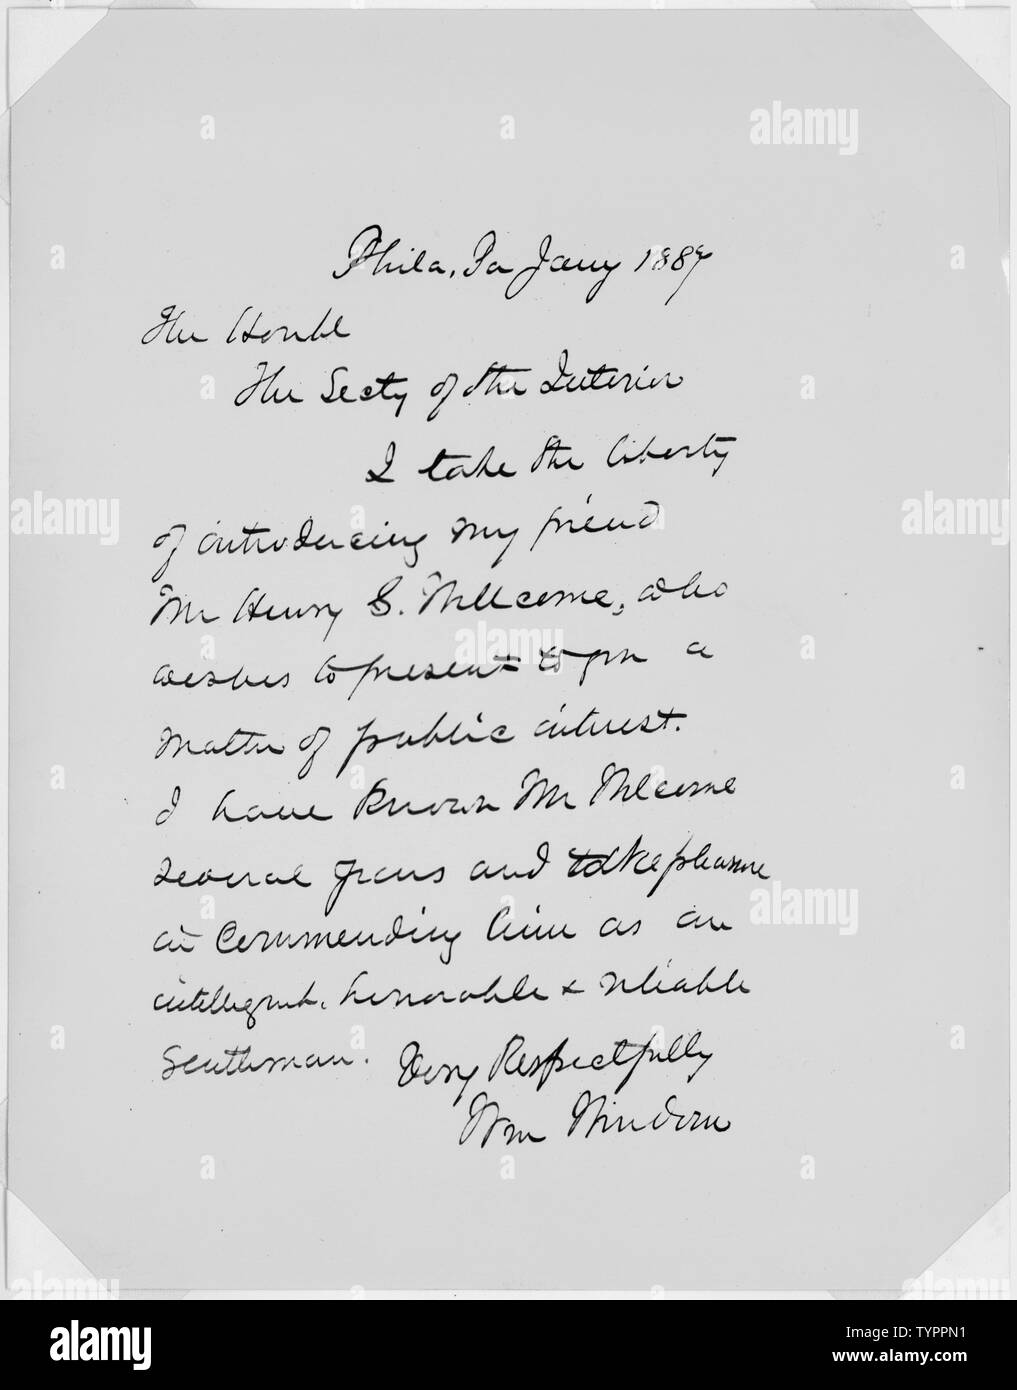 Phila, Pa Jany 1887
The Honbl
The Secty of the Interior
I take the liberty
of introducing my friend
Mr Henry S. Wellcome, who
wishes to present to you a
matter of public interest.
I have known Mr Wellcome
several years and take pleasure
in commending him as an
intelligent, honorable & reliable
Gentleman. Very Respectfully
Wm Windom
alamy
a
alamy stock photo
Image ID: TYPPN1
www.alamy.com